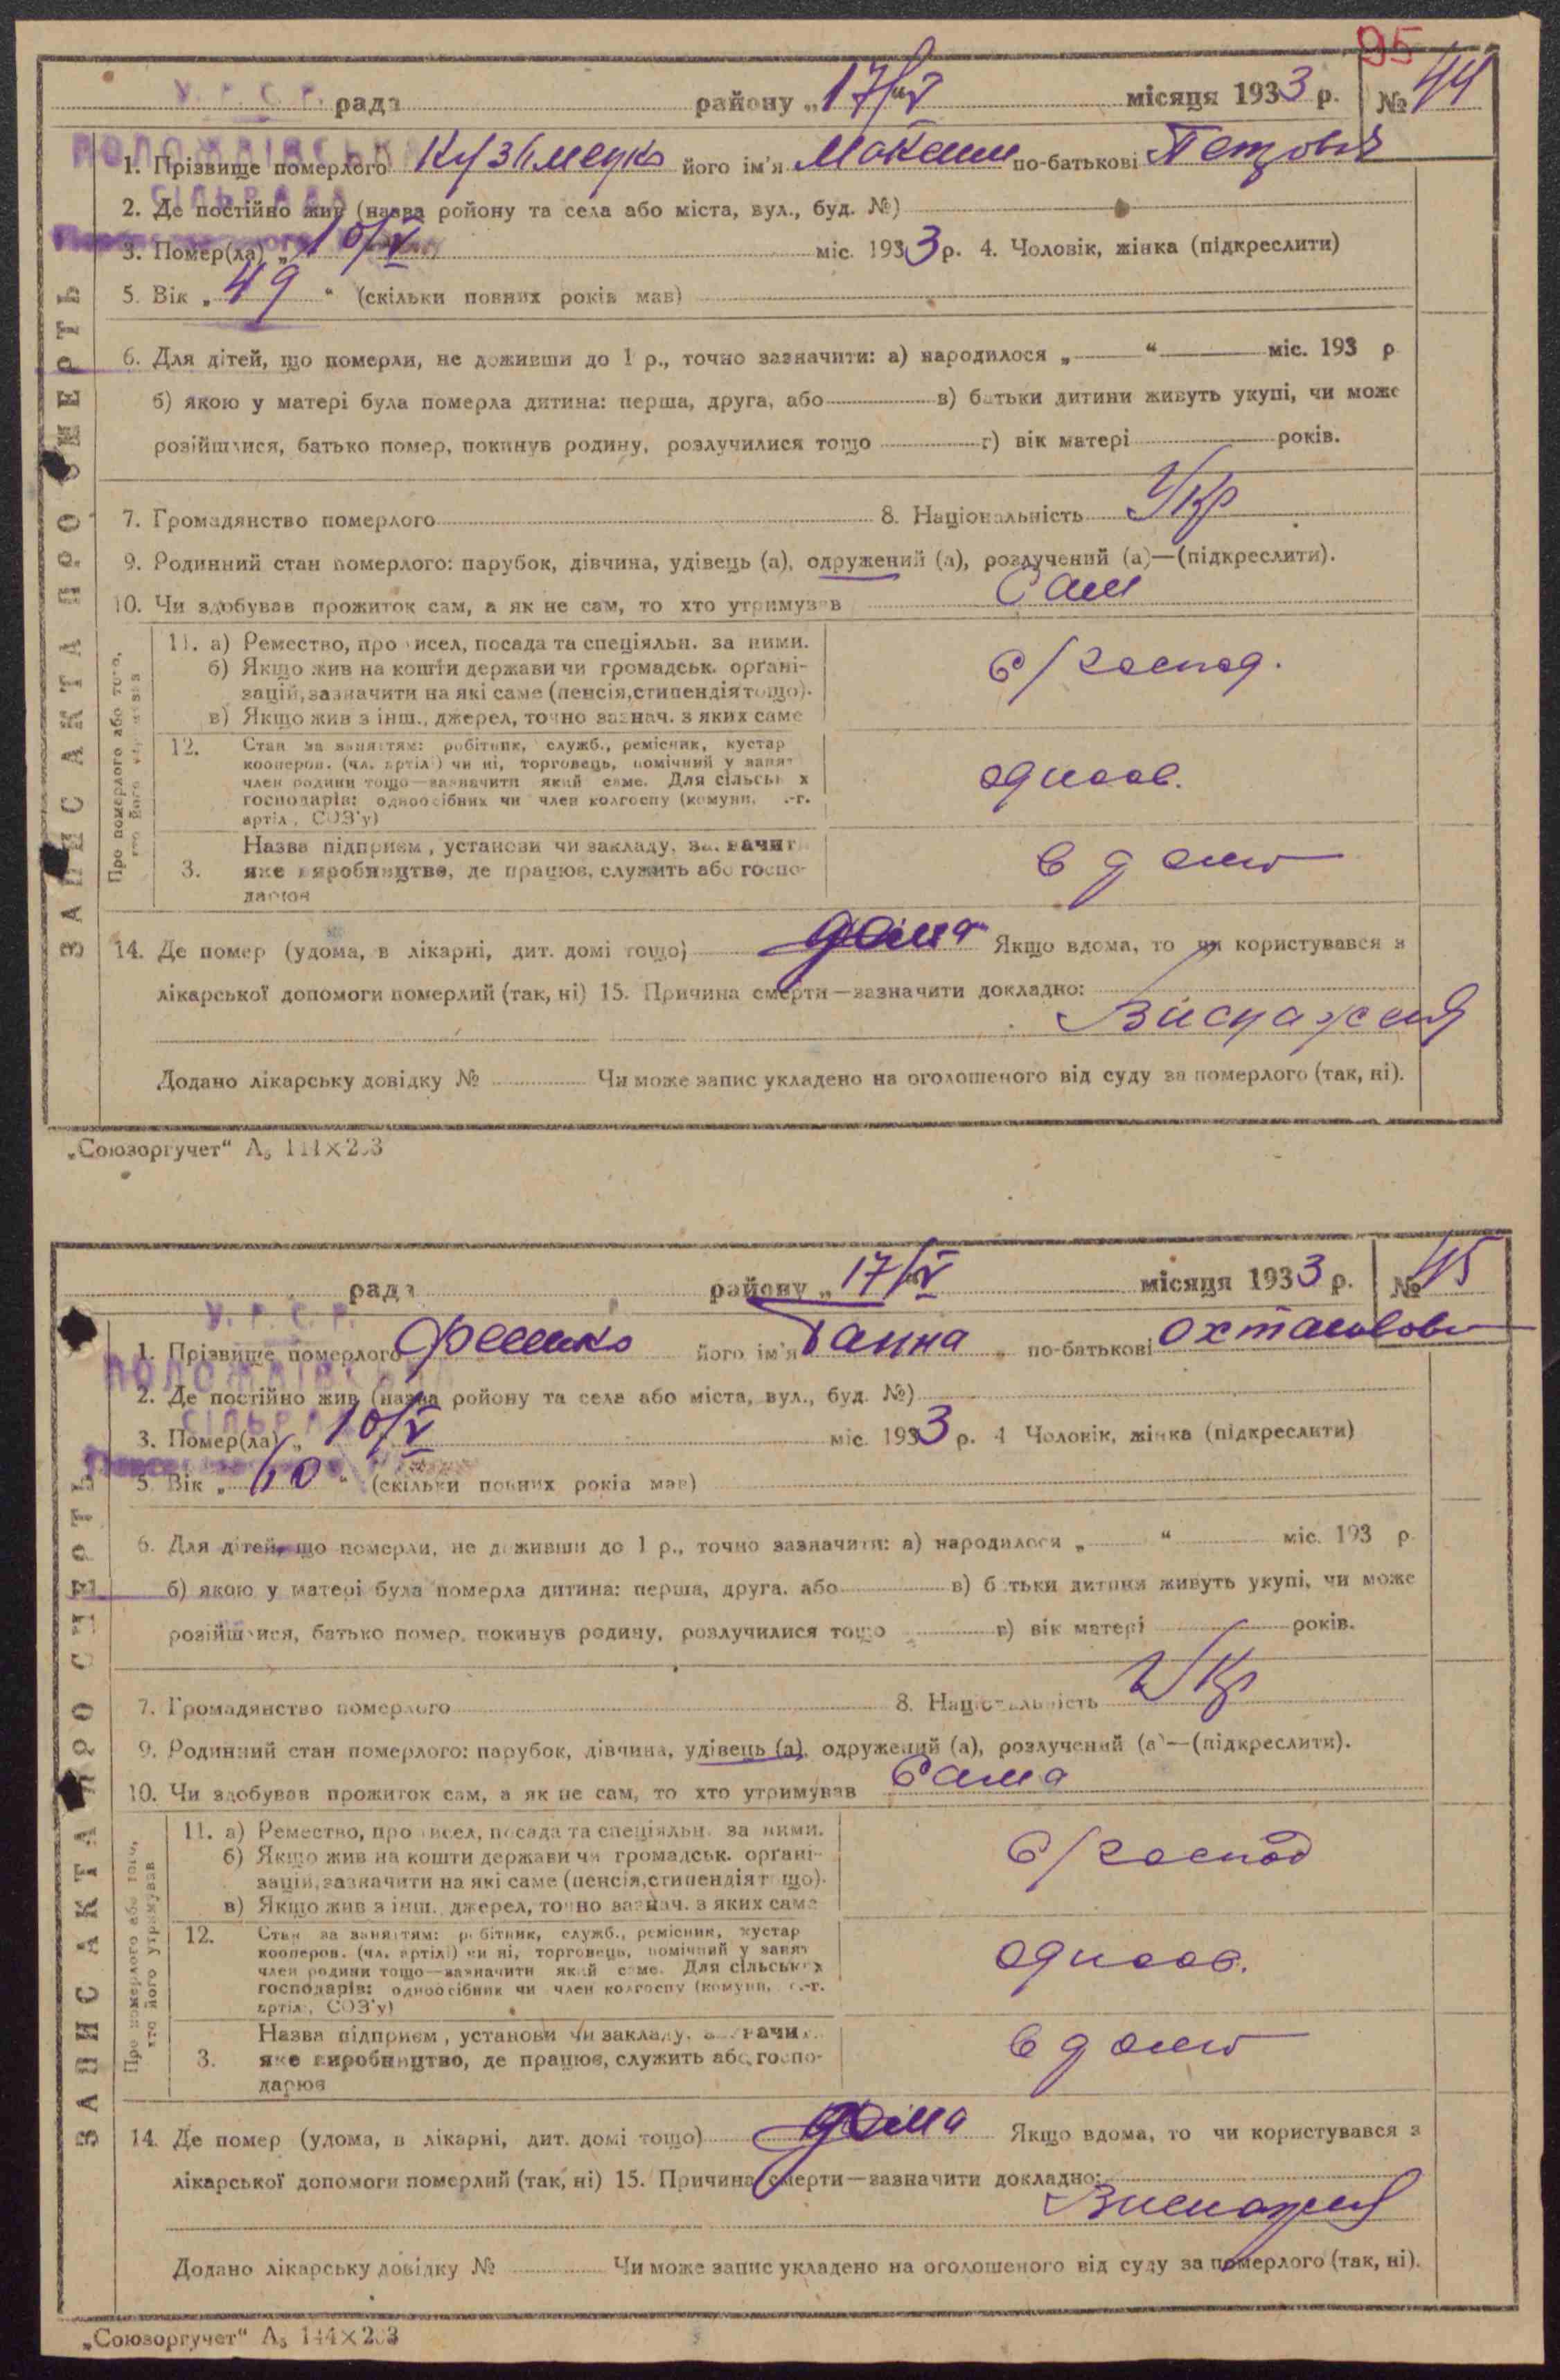 95
У. Р. С. Р. рада району „17/V" місяця 1933 р. № 44
ПОЛОЖАЇВСЬКА
1. Прізвище померлого Кузьменко його ім'я по-батькові Петрович
СІЛЬРАДА
2. Де постійно жив (назва ройону та села або міста, вул., буд. №)
3. Помер(ла) „10/V міс. 1933 р. 4. Чоловік, жінка (підкреслити)
5. Вік „49" (скільки повних років мав)
6. Для дітей, що померли, не доживши до 1 р., точно зазначити: а) народилося „ " міс. 193 р
б) якою у матері була померла дитина: перша, друга, або в) батьки дитини живуть укупі, чи може
розійшлися, батько помер, покинув родину, розлучилися тощо г) вік матері років.
7. Громадянство померлого 8. Національність Укр
9. Родинний стан померлого: парубок, дівчина, удівець (а), одружений (а), розлучений (а)—(підкреслити).
10. Чи здобував прожиток сам, а як не сам, то хто утримував Сам
11. а) Ремество, промисел, посада та спеціяльн. за ними.
б) Якщо жив на кошти держави чи громадськ. органі-
зацій, зазначити на які саме (пенсія, стипендія тощо).
в) Якщо жив з інш., джерел, точно зазнач. з яких саме
с/господ.
12. Стан за заняттям: робітник, служб., ремісник, кустар
кооперов. (чл. артілі) чи ні, торговець, помічний у занят
член родини тощо—зазначити який саме. Для сільських
господарів: одноосібник чи член колгоспу (комуни, с.-г.
артіл, СОЗ'у)
одноос.
Назва підприєм, установи чи закладу, зазначит
3. яке виробництво, де працює, служить або госпо-
дарює
в дома
14. Де помер (удома, в лікарні, дит. домі тощо) дома Якщо вдома, то чи користувався з
лікарської допомоги померлий (так, ні) 15. Причина смерти—зазначити докладно:
Виснаження
Додано лікарську довідку № Чи може запис укладено на оголошеного від суду за померлого (так, ні).
ЗАПИС АКТА ПРО СМЕРТЬ
Про померлого або того, хто його утримував
„Союзоргучет" А5 144×203
рада району „17/V" місяця 1933 р. № 45
У. Р. С. Р.
1. Прізвище померлого його ім'я Ганна по-батькові
ПОЛОЖАЇВСЬКА
2. Де постійно жив (назва ройону та села або міста, вул., буд. №)
СІЛЬРАДА
3. Помер(ла) „10/V міс. 1933 р. 4 Чоловік, жінка (підкреслити)
5. Вік „60" (скільки повних років мав)
6. Для дітей, що померли, не доживши до 1 р., точно зазначити: а) народилося „ " міс. 193 р.
б) якою у матері була померла дитина: перша, друга, або в) батьки дитини живуть укупі, чи може
розійшлися, батько помер, покинув родину, розлучилися тощо г) вік матері років.
7. Громадянство померлого 8. Національність Укр
9. Родинний стан померлого: парубок, дівчина, удівець (а), одружений (а), розлучений (а)—(підкреслити).
10. Чи здобував прожиток сам, а як не сам, то хто утримував Сама
11. а) Ремество, промисел, посада та спеціяльн. за ними.
б) Якщо жив на кошти держави чи громадськ. органі-
зацій, зазначити на які саме (пенсія, стипендія тощо).
в) Якщо жив з інш., джерел, точно зазнач. з яких саме
с/господ
12. Стан за заняттям: робітник, служб., ремісник, кустар
кооперов. (чл. артілі) чи ні, торговець, помічний у занят
член родини тощо—зазначити який саме. Для сільських
господарів: одноосібник чи член колгоспу (комуни, с.-г.
артіл, СОЗ'у)
одноос.
Назва підприєм, установи чи закладу, зазначит
3. яке виробництво, де працює, служить або госпо-
дарює
в дома
14. Де помер (удома, в лікарні, дит. домі тощо) дома Якщо вдома, то чи користувався з
лікарської допомоги померлий (так, ні) 15. Причина смерти—зазначити докладно:
Виснаження
Додано лікарську довідку № Чи може запис укладено на оголошеного від суду за померлого (так, ні).
ЗАПИС АКТА ПРО СМЕРТЬ
Про померлого або того, хто його утримував
„Союзоргучет" А5 144×203